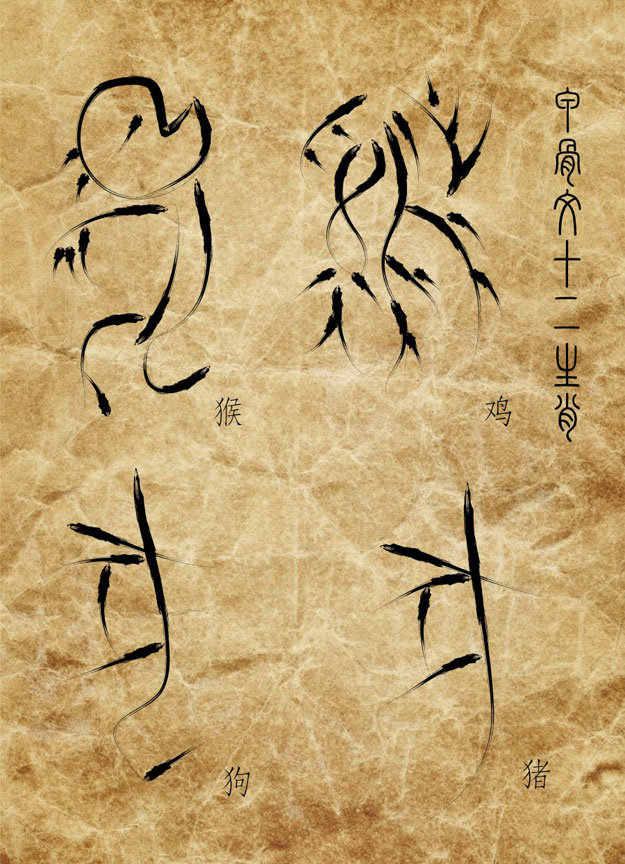 甲骨文十二生肖
猴
鸡
狗
猪